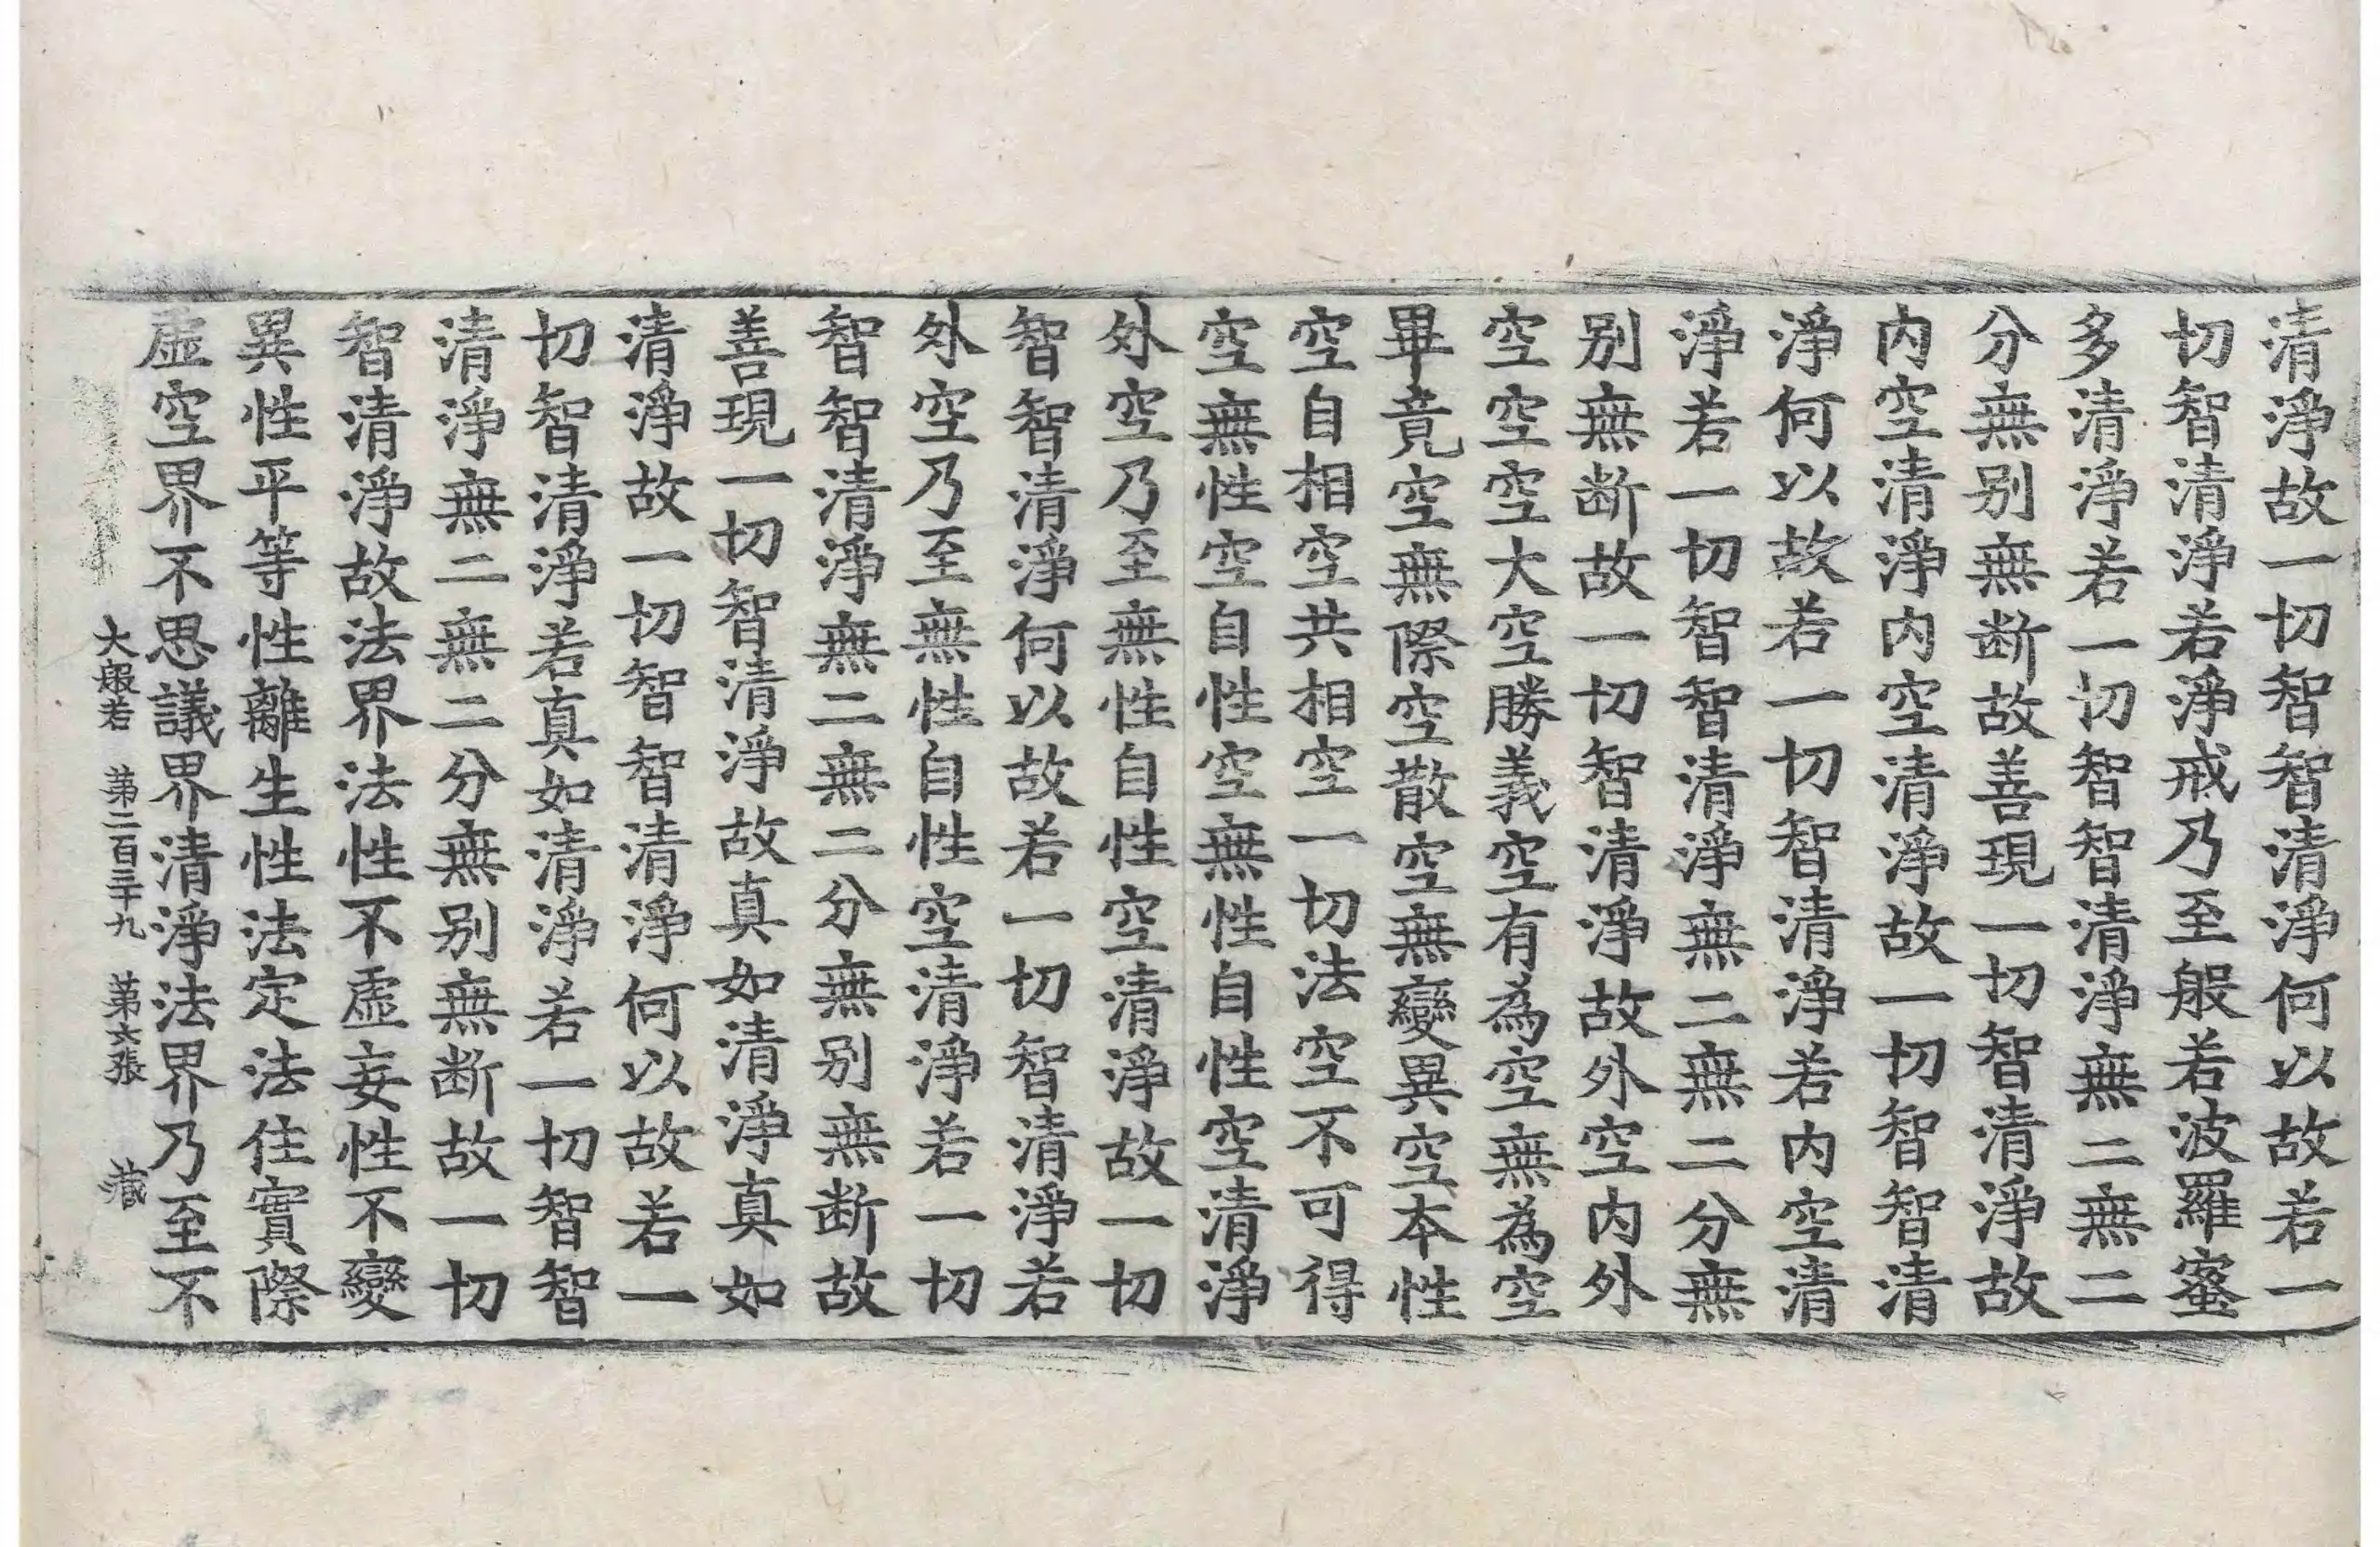 清淨故一切智智清淨何以故若一
切智清淨若淨戒乃至般若波羅蜜
多清淨若一切智智清淨無二無二
分無别無断故善現一切智清淨故
内空清淨内空清淨故一切智智清
淨何以故若一切智清淨若内空清
淨若一切智智清淨無二無二分無
别無断故一切智清淨故外空内外
空空空大空勝義空有為空無為空
畢竟空無際空散空無變異空本性
空自相空共相空一切法空不可得
空無性空自性空無性自性空清淨
外空乃至無性自性空清淨故一切
智智清淨何以故若一切智清淨若
外空乃至無性自性空清淨若一切
智智清淨無二無二分無别無断故
善現一切智清淨故真如清淨真如
清淨故一切智智清淨何以故若一
切智清淨若真如清淨若一切智智
清淨無二無二分無别無断故一切
智清淨故法界法性不虛妄性不變
異性平等性離生性法定法住實際
虛空界不思議界清淨法界乃至不
大般若 第二百三十九 第六張 藏